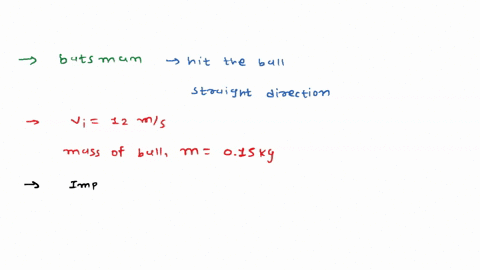 → batsman → hit the ball
straight direction
→ Vi = 12 m/s
mass of ball, m = 0.15 kg
→ Imp